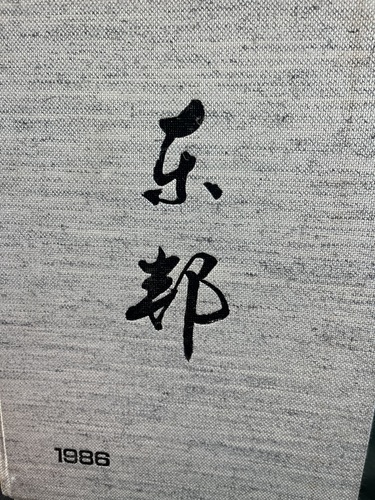 东
邦
1986